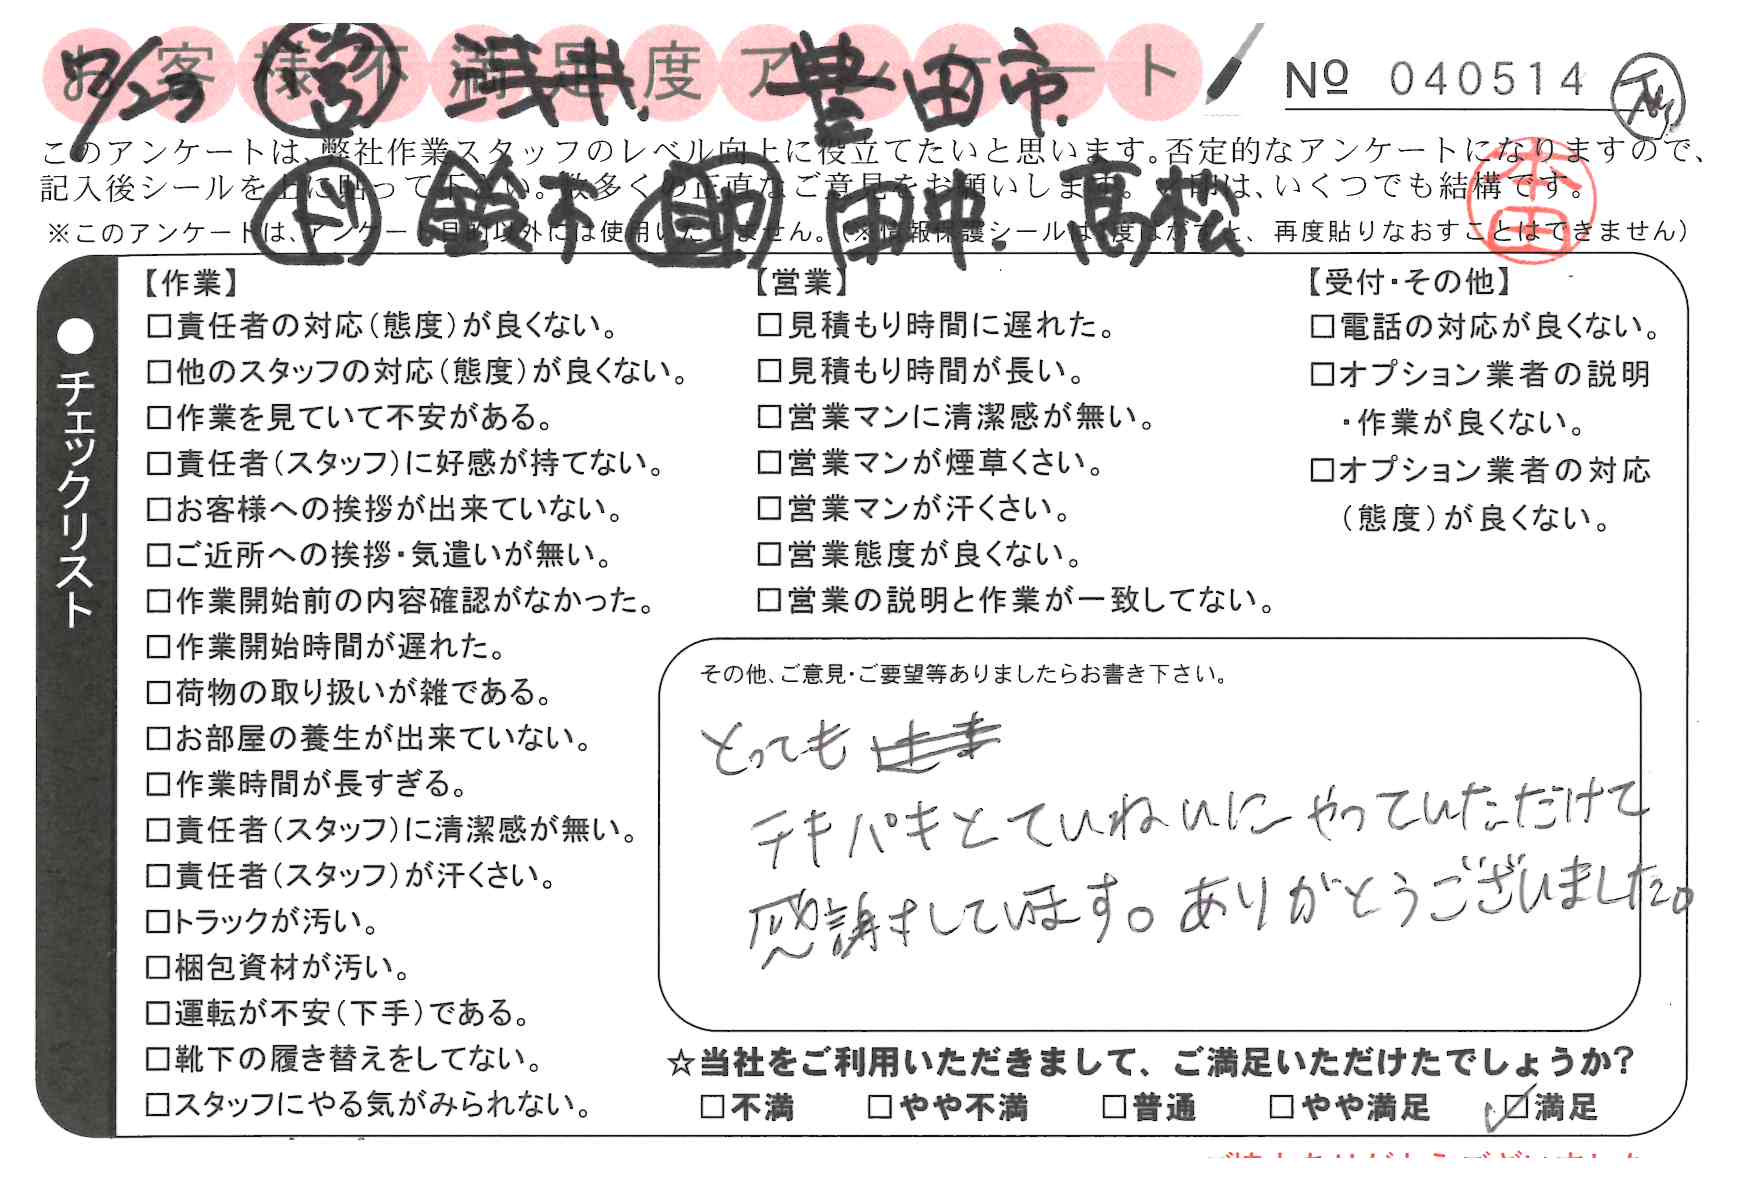 お客様不満足度アンケート
営 浅井 豊田市
№ 040514
このアンケートは、弊社作業スタッフのレベル向上に役立てたいと思います。否定的なアンケートになりますので、
記入後シールを上に貼って下さい。数多くの正直なご意見をお願いします。 印は、いくつでも結構です。
ト 鈴木 田中 高松
本田
※このアンケートは、アンケート目的以外には使用いたしません。(※情報保護シールは1度はがすと、再度貼りなおすことはできません)
●チェックリスト
【作業】
□責任者の対応(態度)が良くない。
□他のスタッフの対応(態度)が良くない。
□作業を見ていて不安がある。
□責任者(スタッフ)に好感が持てない。
□お客様への挨拶が出来ていない。
□ご近所への挨拶・気遣いが無い。
□作業開始前の内容確認がなかった。
□作業開始時間が遅れた。
□荷物の取り扱いが雑である。
□お部屋の養生が出来ていない。
□作業時間が長すぎる。
□責任者(スタッフ)に清潔感が無い。
□責任者(スタッフ)が汗くさい。
□トラックが汚い。
□梱包資材が汚い。
□運転が不安(下手)である。
□靴下の履き替えをしてない。
□スタッフにやる気がみられない。
【営業】
□見積もり時間に遅れた。
□見積もり時間が長い。
□営業マンに清潔感が無い。
□営業マンが煙草くさい。
□営業マンが汗くさい。
□営業態度が良くない。
□営業の説明と作業が一致してない。
【受付・その他】
□電話の対応が良くない。
□オプション業者の説明
・作業が良くない。
□オプション業者の対応
(態度)が良くない。
その他、ご意見・ご要望等ありましたらお書き下さい。
とっても
テキパキとていねいにやっていただけて
感謝しています。ありがとうございました。
☆当社をご利用いただきまして、ご満足いただけたでしょうか?
□不満 □やや不満 □普通 □やや満足 ☑満足